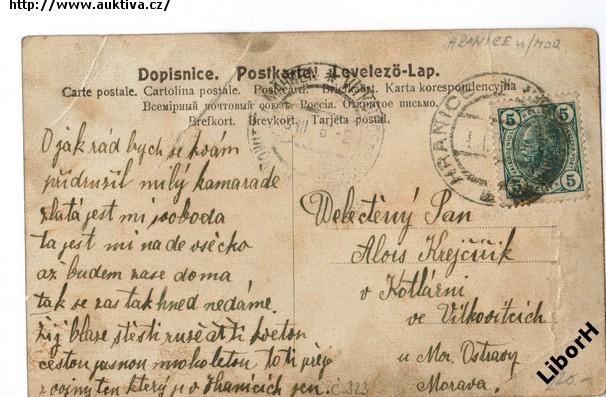 http://www.auktiva.cz/
HRANICE n/MOR.
Dopisnice. Postkarte. Levelező-Lap.
Carte postale. Cartolina postale. Postcard. Briefkaart. Karta korespondencyjna
Всемірный почтовый союзъ. Россія. Открытое письмо.
Brefkort. Brevkort. Tarjeta postal.
HRANICE
5 5
5 5
O jak rád bych se k vám
přidružil milý kamarade
zlatá jest mi svoboda
ta jest mi nade všecko
až budem zase doma
tak se zas tak hned nedáme.
Žij blaze štěstí
cestou jasnou to ti přeje
ten který je v Hranicích jen.
Velectěný Pan
Alois Krejčiřík
v Kotlárni
ve Vítkovicích
u Mor. Ostravy
Morava.
č. 323
120.-
LiborH